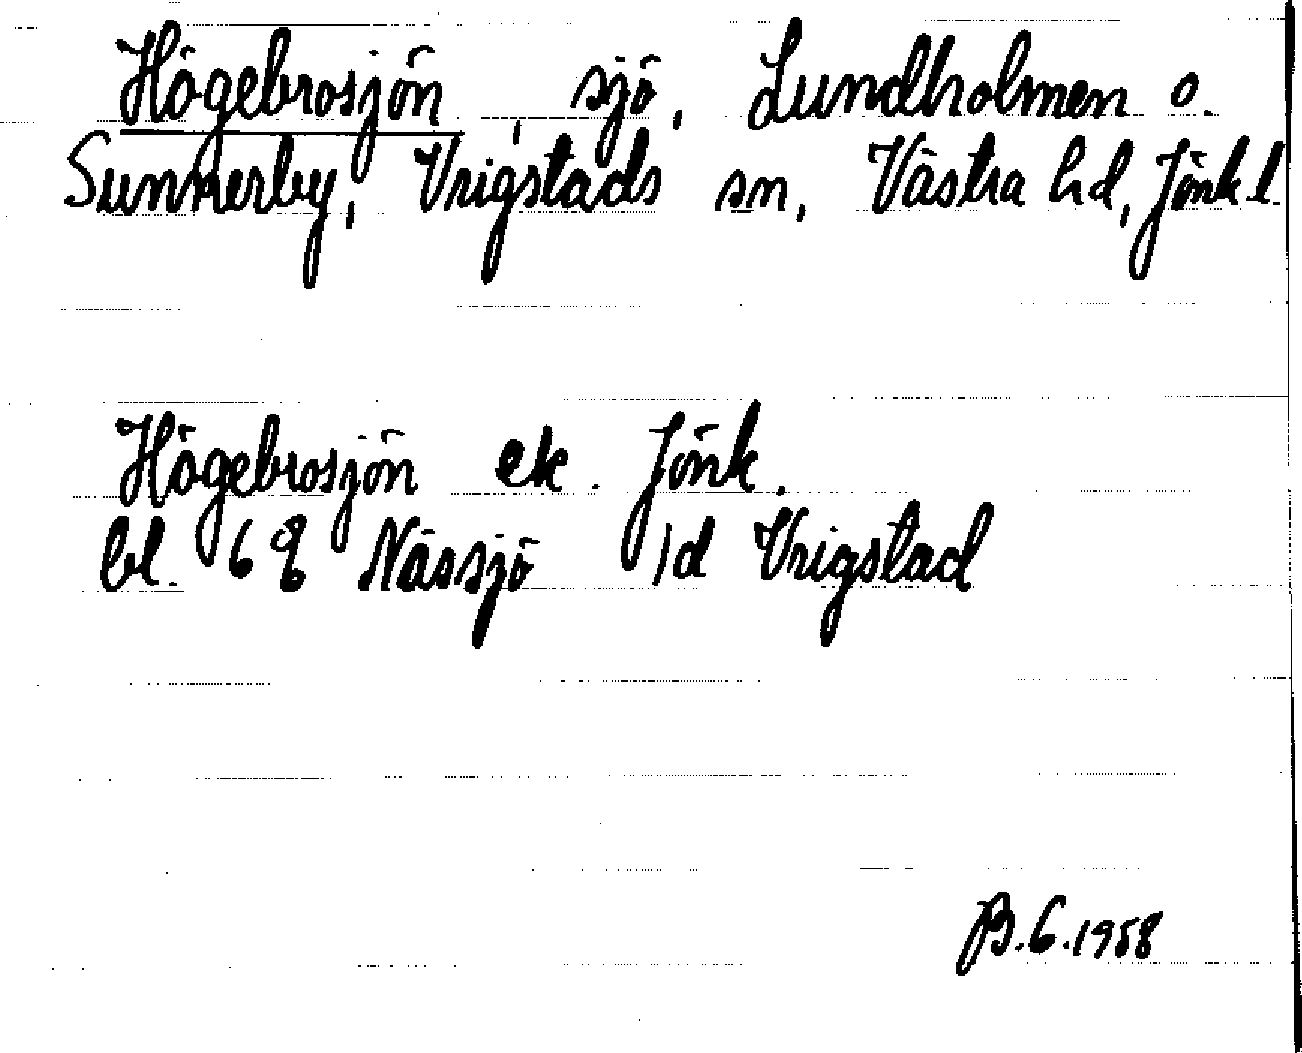 Högebrosjön, sjö, Lundholmen o.
Sunnerby, Vrigstads sn, Västra hd, Jönk l.
Högebrosjön ek. Jönk.
bl. 68 Nässjö 1d Vrigstad
B.G.1958